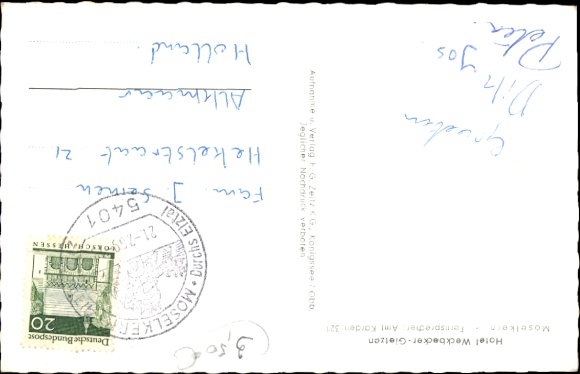 Hotel Weckbecker-Gietzen
Moselkern - Fernsprecher Amt Karden 321
Groeten
Jos
Peter
Aufnahme u. Verlag F. G. Zeitz K.G., Königssee / Obb.
Jeglicher Nachdruck verboten
Deutsche Bundespost
20
LORSCH/HESSEN
5401
MOSELKERN
21.-2.
Fam. J. Seinen
Hekelstraat 21
Alkmaar
Holland
3,50 €